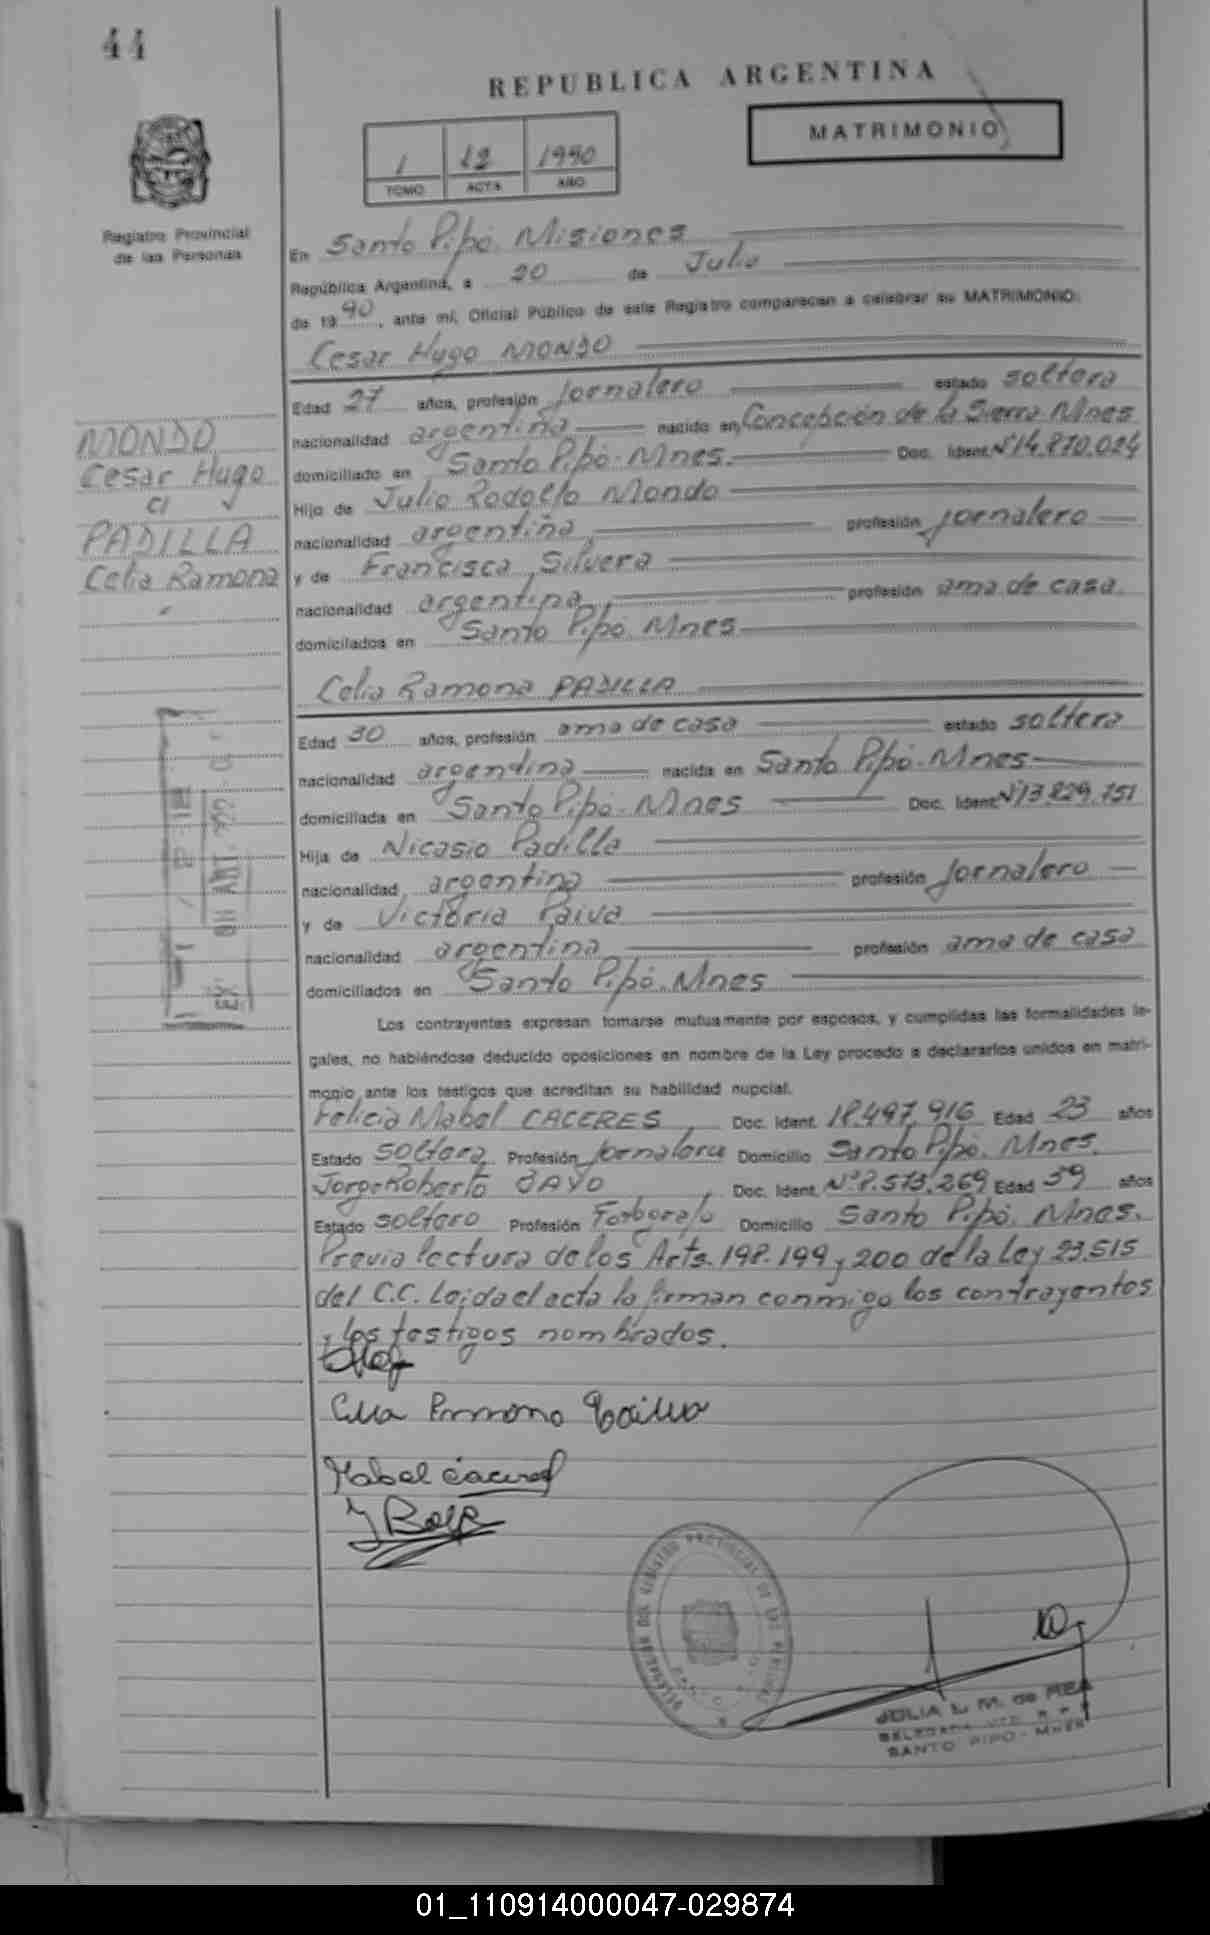 44
REPUBLICA ARGENTINA
MATRIMONIO
1 12 1990
TOMO ACTA AÑO
Registro Provincial
de las Personas
En Santo Pipó. Misiones
República Argentina, a 20 de Julio
de 1990, ante mí, Oficial Público de este Registro comparecen a celebrar su MATRIMONIO:
Cesar Hugo MONDO
Edad 27 años, profesión Jornalero estado soltero
nacionalidad argentina nacido en Concepción de la Sierra Mnes
domiciliado en Santo Pipó-Mnes. Doc. Ident. Nº14.870.024
Hijo de Julio Rodolfo Mondo
nacionalidad argentina, profesión Jornalero
y de Francisca Silvera
nacionalidad argentina, profesión ama de casa.
domiciliados en Santo Pipó Mnes
MONDO
Cesar Hugo
c/
PADILLA
Celia Ramona
Celia Ramona PADILLA
Edad 30 años, profesión ama de casa estado soltera
nacionalidad argentina nacida en Santo Pipó-Mnes
domiciliada en Santo Pipó-Mnes Doc. Ident. Nº13.829.151
Hija de Nicasio Padilla
nacionalidad argentina profesión Jornalero
y de Victoria Paiva
nacionalidad argentina profesión ama de casa
domiciliados en Santo Pipó. Mnes
Los contrayentes expresan tomarse mutuamente por esposos, y cumplidas las formalidades le-
gales, no habiéndose deducido oposiciones en nombre de la Ley procedo a declararlos unidos en matri-
monio ante los testigos que acreditan su habilidad nupcial.
Felicia Mabel CACERES, Doc. Ident. 18.497.916 Edad 23 años
Estado soltera Profesión Jornalera Domicilio Santo Pipó. Mnes.
Jorge Roberto, Doc. Ident. Nº8.573.269 Edad 39 años
Estado soltero Profesión Domicilio Santo Pipó. Mnes.
Previa lectura de los Arts. 198-199 y 200 de la Ley 23.515
del C.C. Leida el acta la firman conmigo los contrayentes
y los testigos nombrados.
Mabel Caceres
DELEGACION DEL REGISTRO PROVINCIAL DE LAS PERSONAS
JULIA L. M. de REA
SANTO PIPO - MNES
01_110914000047-029874